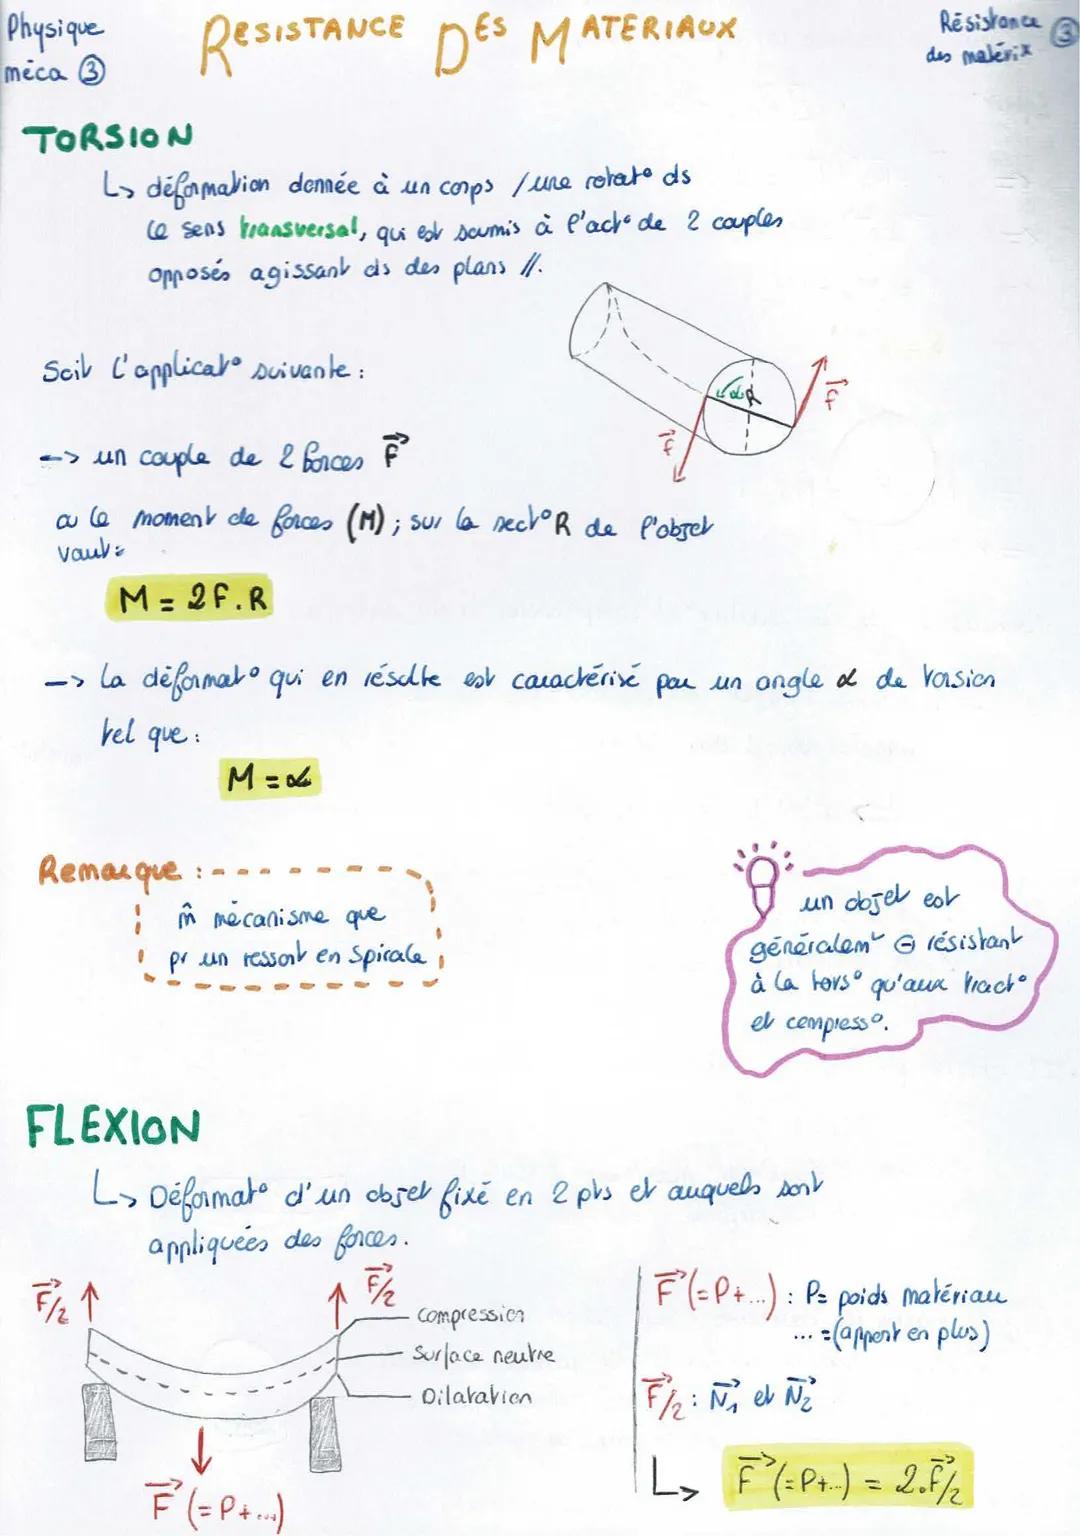 Physique
méca ③
RESISTANCE DES MATERIAUX
Résistance ③
des matérix
TORSION
↳ déformation donnée à un corps / une rotat° ds
le sens transversal, qui est soumis à l'act° de 2 couples
opposés agissant ds des plans //.
Soit l'applicat° suivante :
α R
F→
F→
--> un couple de 2 forces F→
où le moment de forces (M) ; sur la sect° R de l'objet
vaut :
M = 2F.R
--> la déformat° qui en résulte est caractérisé par un angle α de torsion
tel que :
M = α
Remarque :
m̂ mécanisme que
pr un ressort en spirale
un objet est
généralemt ⊖ résistant
à la tors° qu'aux tract°
et compress°.
FLEXION
↳ Déformat° d'un objet fixé en 2 pts et auquels sont
appliquées des forces.
F→/2
F→/2
compression
Surface neutre
Dilatation
F→ (= P + ...)
F→ (= P + ...) : P = poids matériau
... = (apport en plus)
F→/2 : N₁→ et N₂→
↳ F→ (= P + ...) = 2.F→/2